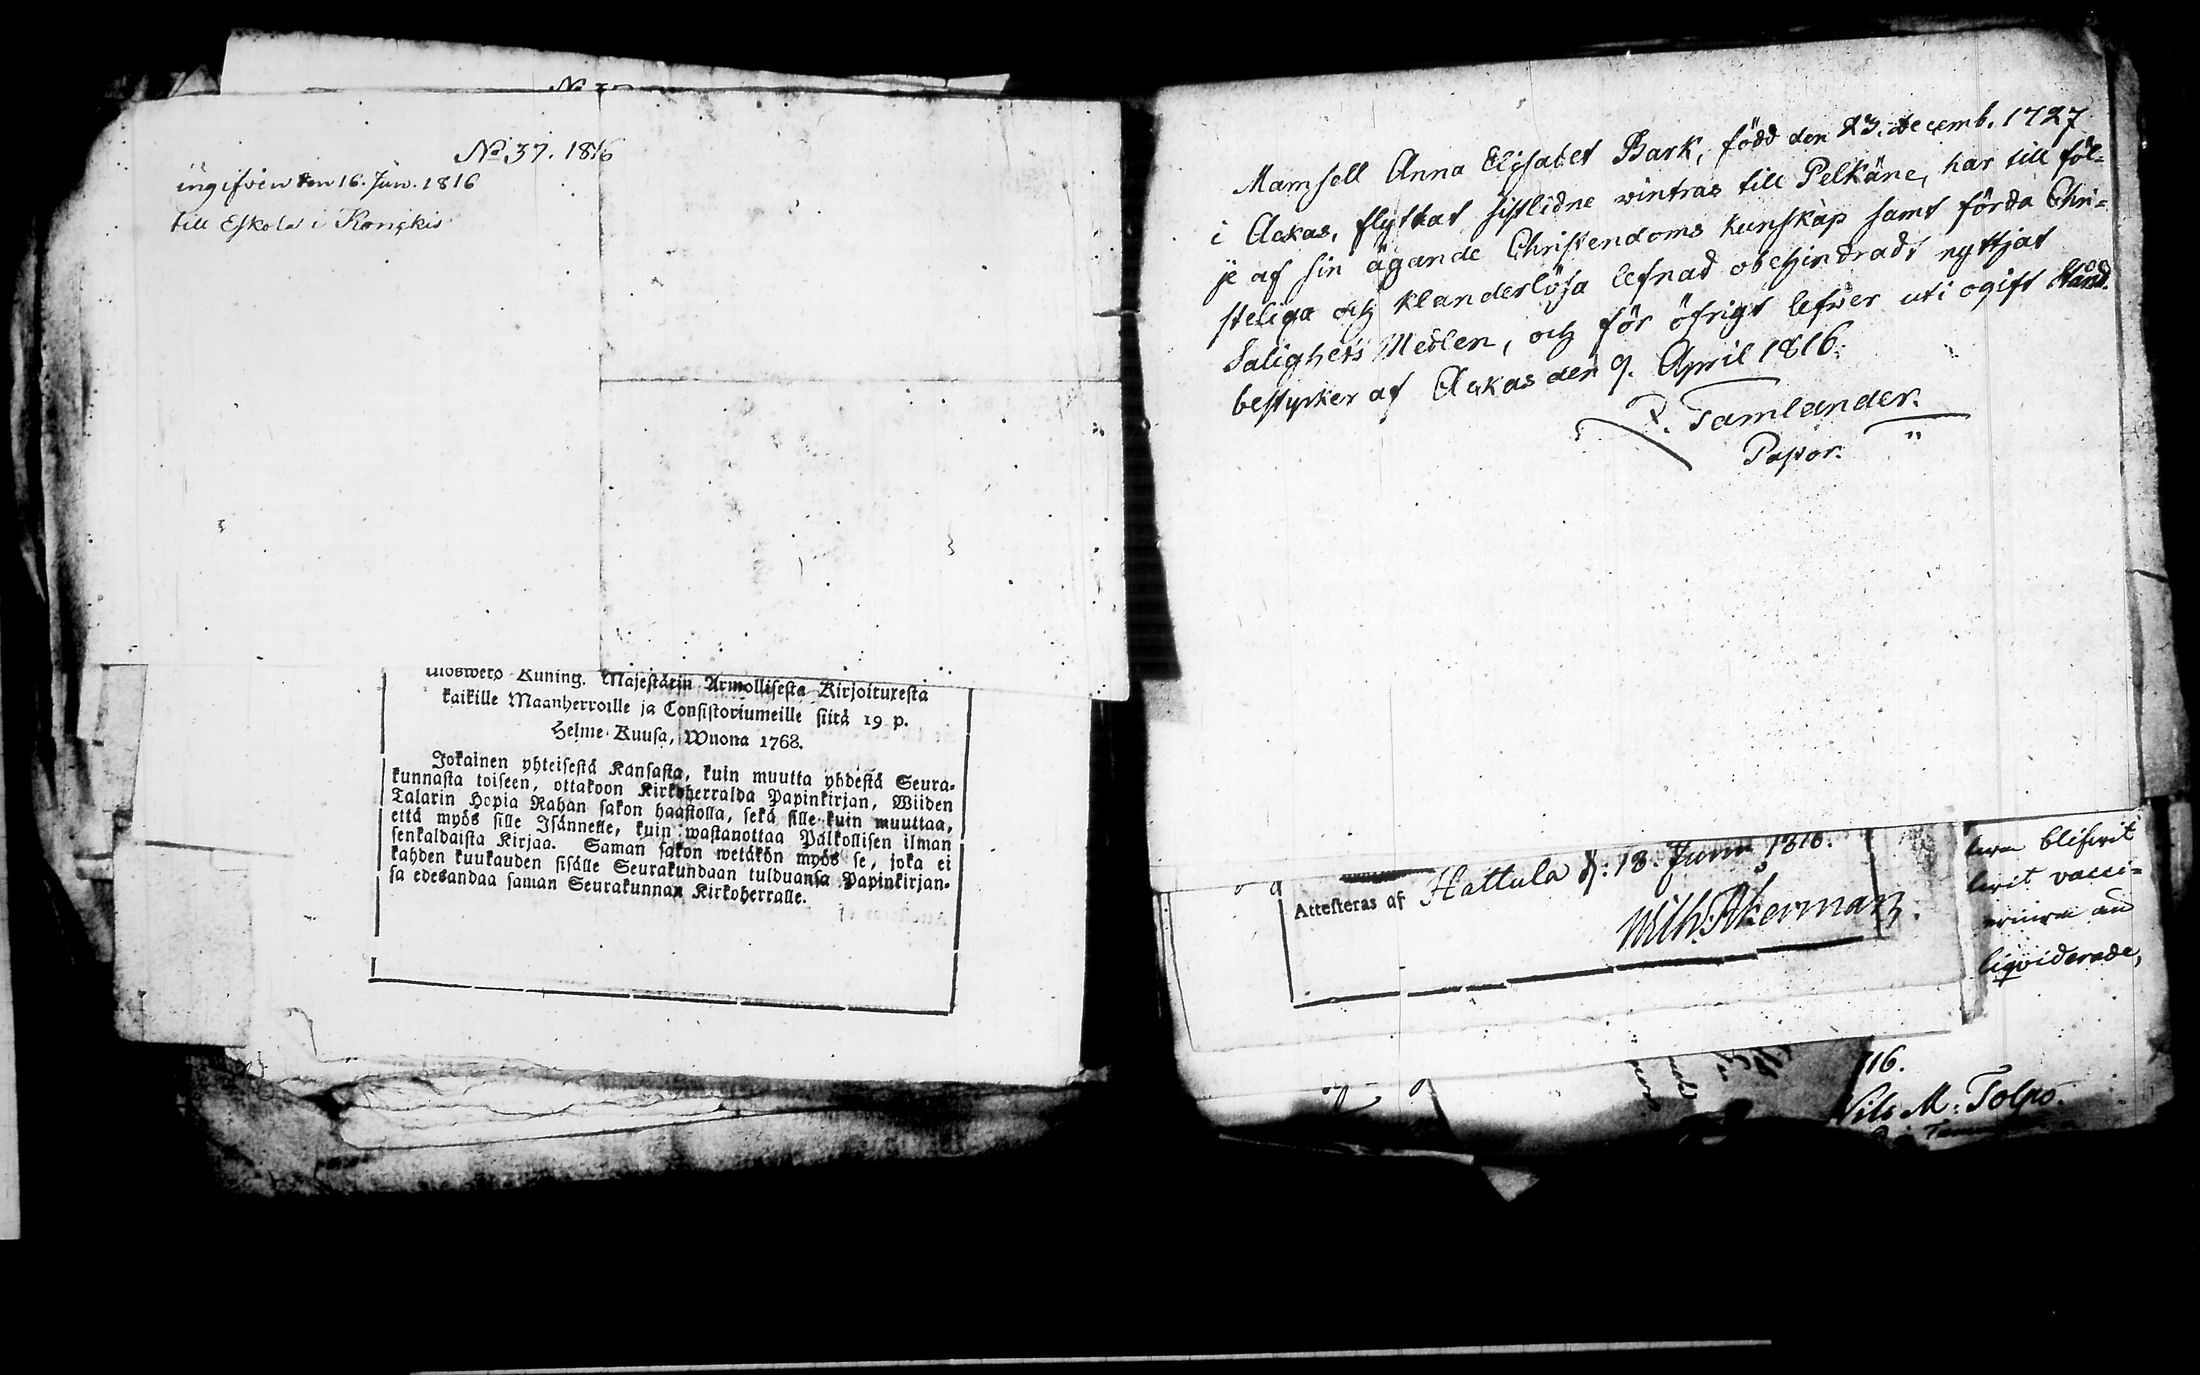 No 37. 1816
ingifven den 16. Jun. 1816
till Eskola i
Uloswero Kuning. Majestätin Armollisesta Kirjoituxesta
kaikille Maanherroille ja Consistoriumeille siitä 19 p.
Helme-Kuusa, Wuona 1768.
Jokainen yhteisestä Kansasta, kuin muutta yhdestä Seura-
kunnasta toiseen, ottakoon Kirkoherralda Papinkirjan, Wiiden
Talarin Hopia Rahan sakon haastolla, sekä sille kuin muuttaa,
että myös sille Isännelle, kuin wastanottaa Palkollisen ilman
senkaldaista Kirjaa. Saman sakon wetäkön myös se, joka ei
kahden kuukauden sisälle Seurakundaan tulduansa Papinkirjan-
sa edesandaa saman Seurakunnan Kirkoherralle.
Mamsell Anna Elisabet Bark, född den 23. decemb. 1727
i Ackas, flyttat sistlidne vintras till Pelkäne, har till föl-
je af sin ägande Christendoms kunskap samt förda Chri-
steliga och klanderlösa lefnad obehindradt nyttjat
Salighets Medlen, och för öfrigt lefver uti ogift stånd.
bestyrker af Ackas den 9. April 1816.
P. Tamlander.
Pastor.
Attesteras af Hattula d: 18. Junii 1816.
Wilh. Åkerman.
blifvit
vacci-
liqviderade,
16.
Nils M. Tolpo.